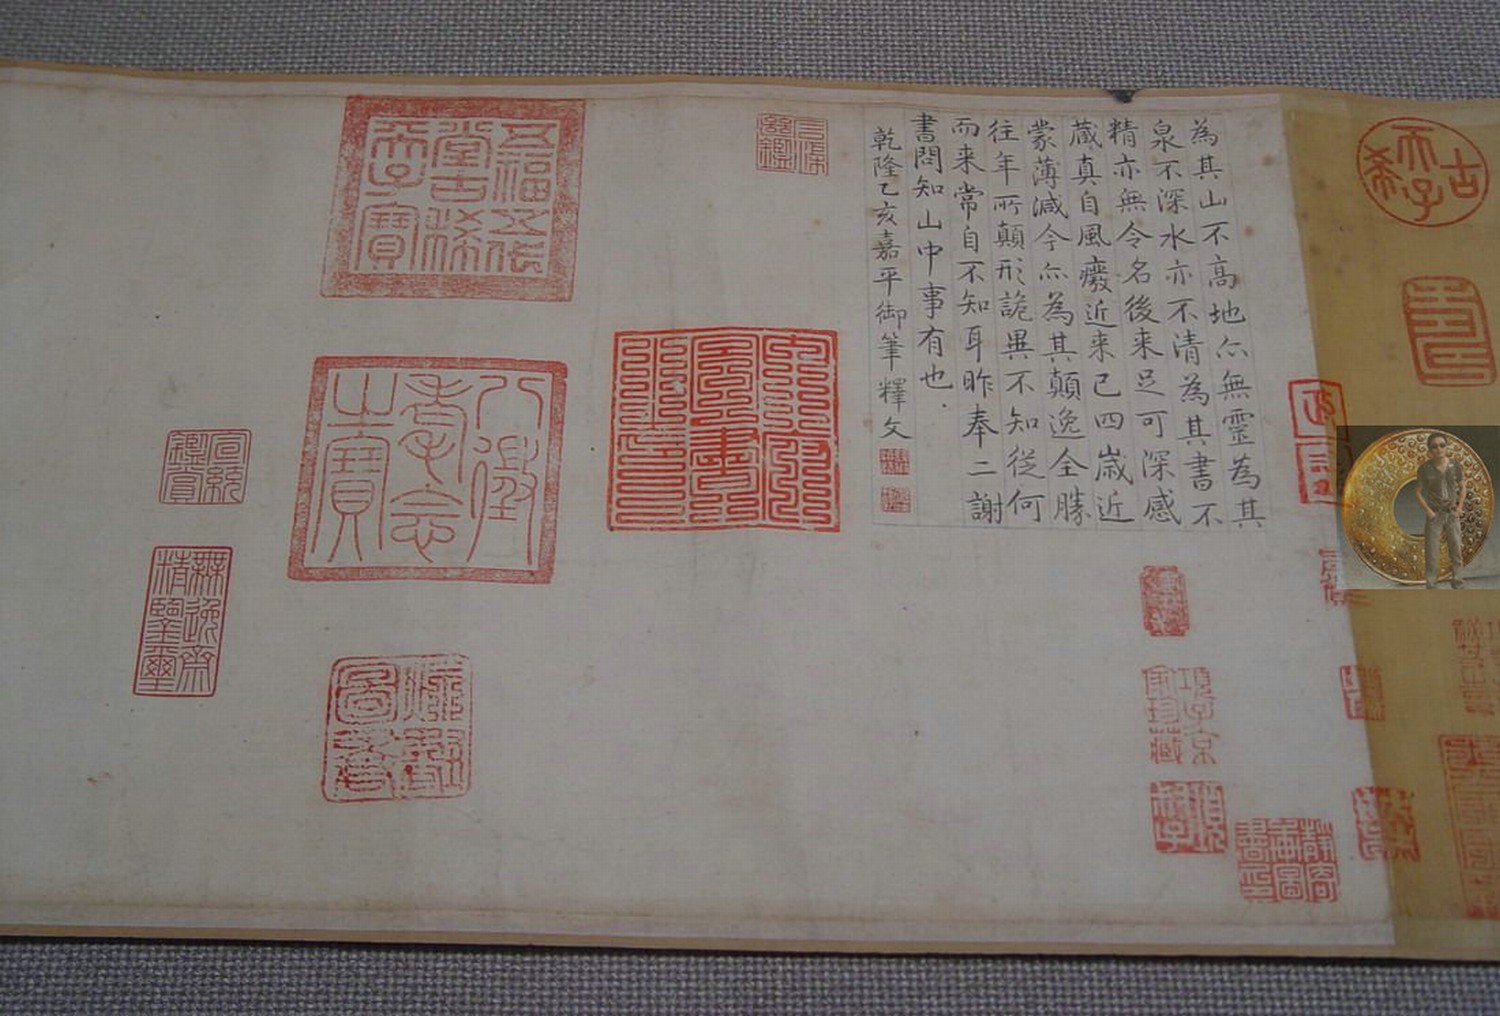 古希天子
壽
為其山不高地亦無靈為其
泉不深水亦不清為其書不
精亦無令名後來足可深感
藏真自風癈近來已四歲近
蒙薄減今亦為其顛逸全勝
往年所顛形詭異不知從何
而來常自不知耳昨奉二謝
書問知山中事有也
乾隆乙亥嘉平御筆釋文
項子京家珍藏
五福五代堂古稀天子寶
八徵耄念之寶
宣統鑑賞
無逸齋精鑒璽